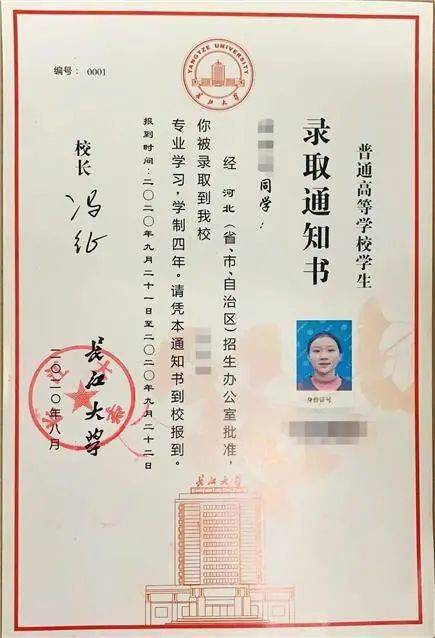 编号：0001
YANGTZE UNIVERSITY
长江大学
普通高等学校学生
录取通知书
同学：
经河北（省、市、自治区）招生办公室批准，
你被录取到我校
专业学习，学制四年。请凭本通知书到校报到。
报到时间：二〇二〇年九月二十一日至二〇二〇年九月二十二日
校长 冯征
长江大学
二〇二〇年八月
身份证号
长江大学